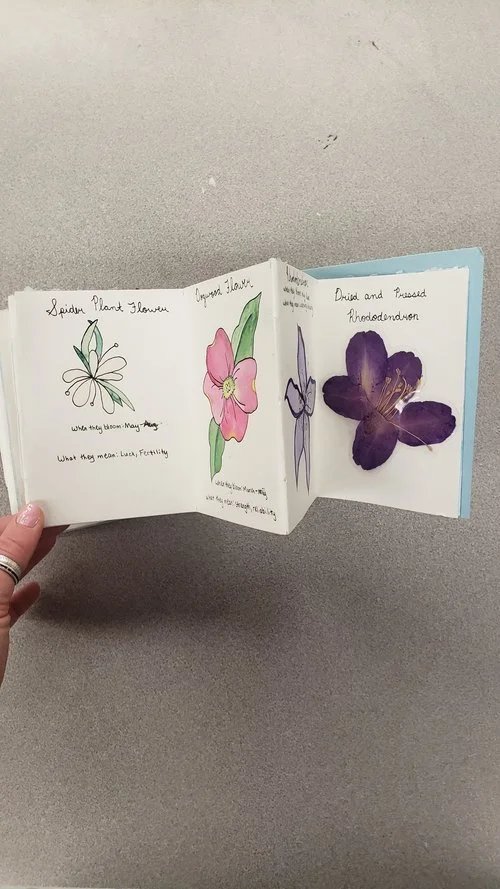 Spider Plant Flower
When they bloom: May-
What they mean: Luck, Fertility
Dogwood Flower
When they bloom: March-May
What they mean: Strength, reliability
Dried and Pressed
Rhododendron